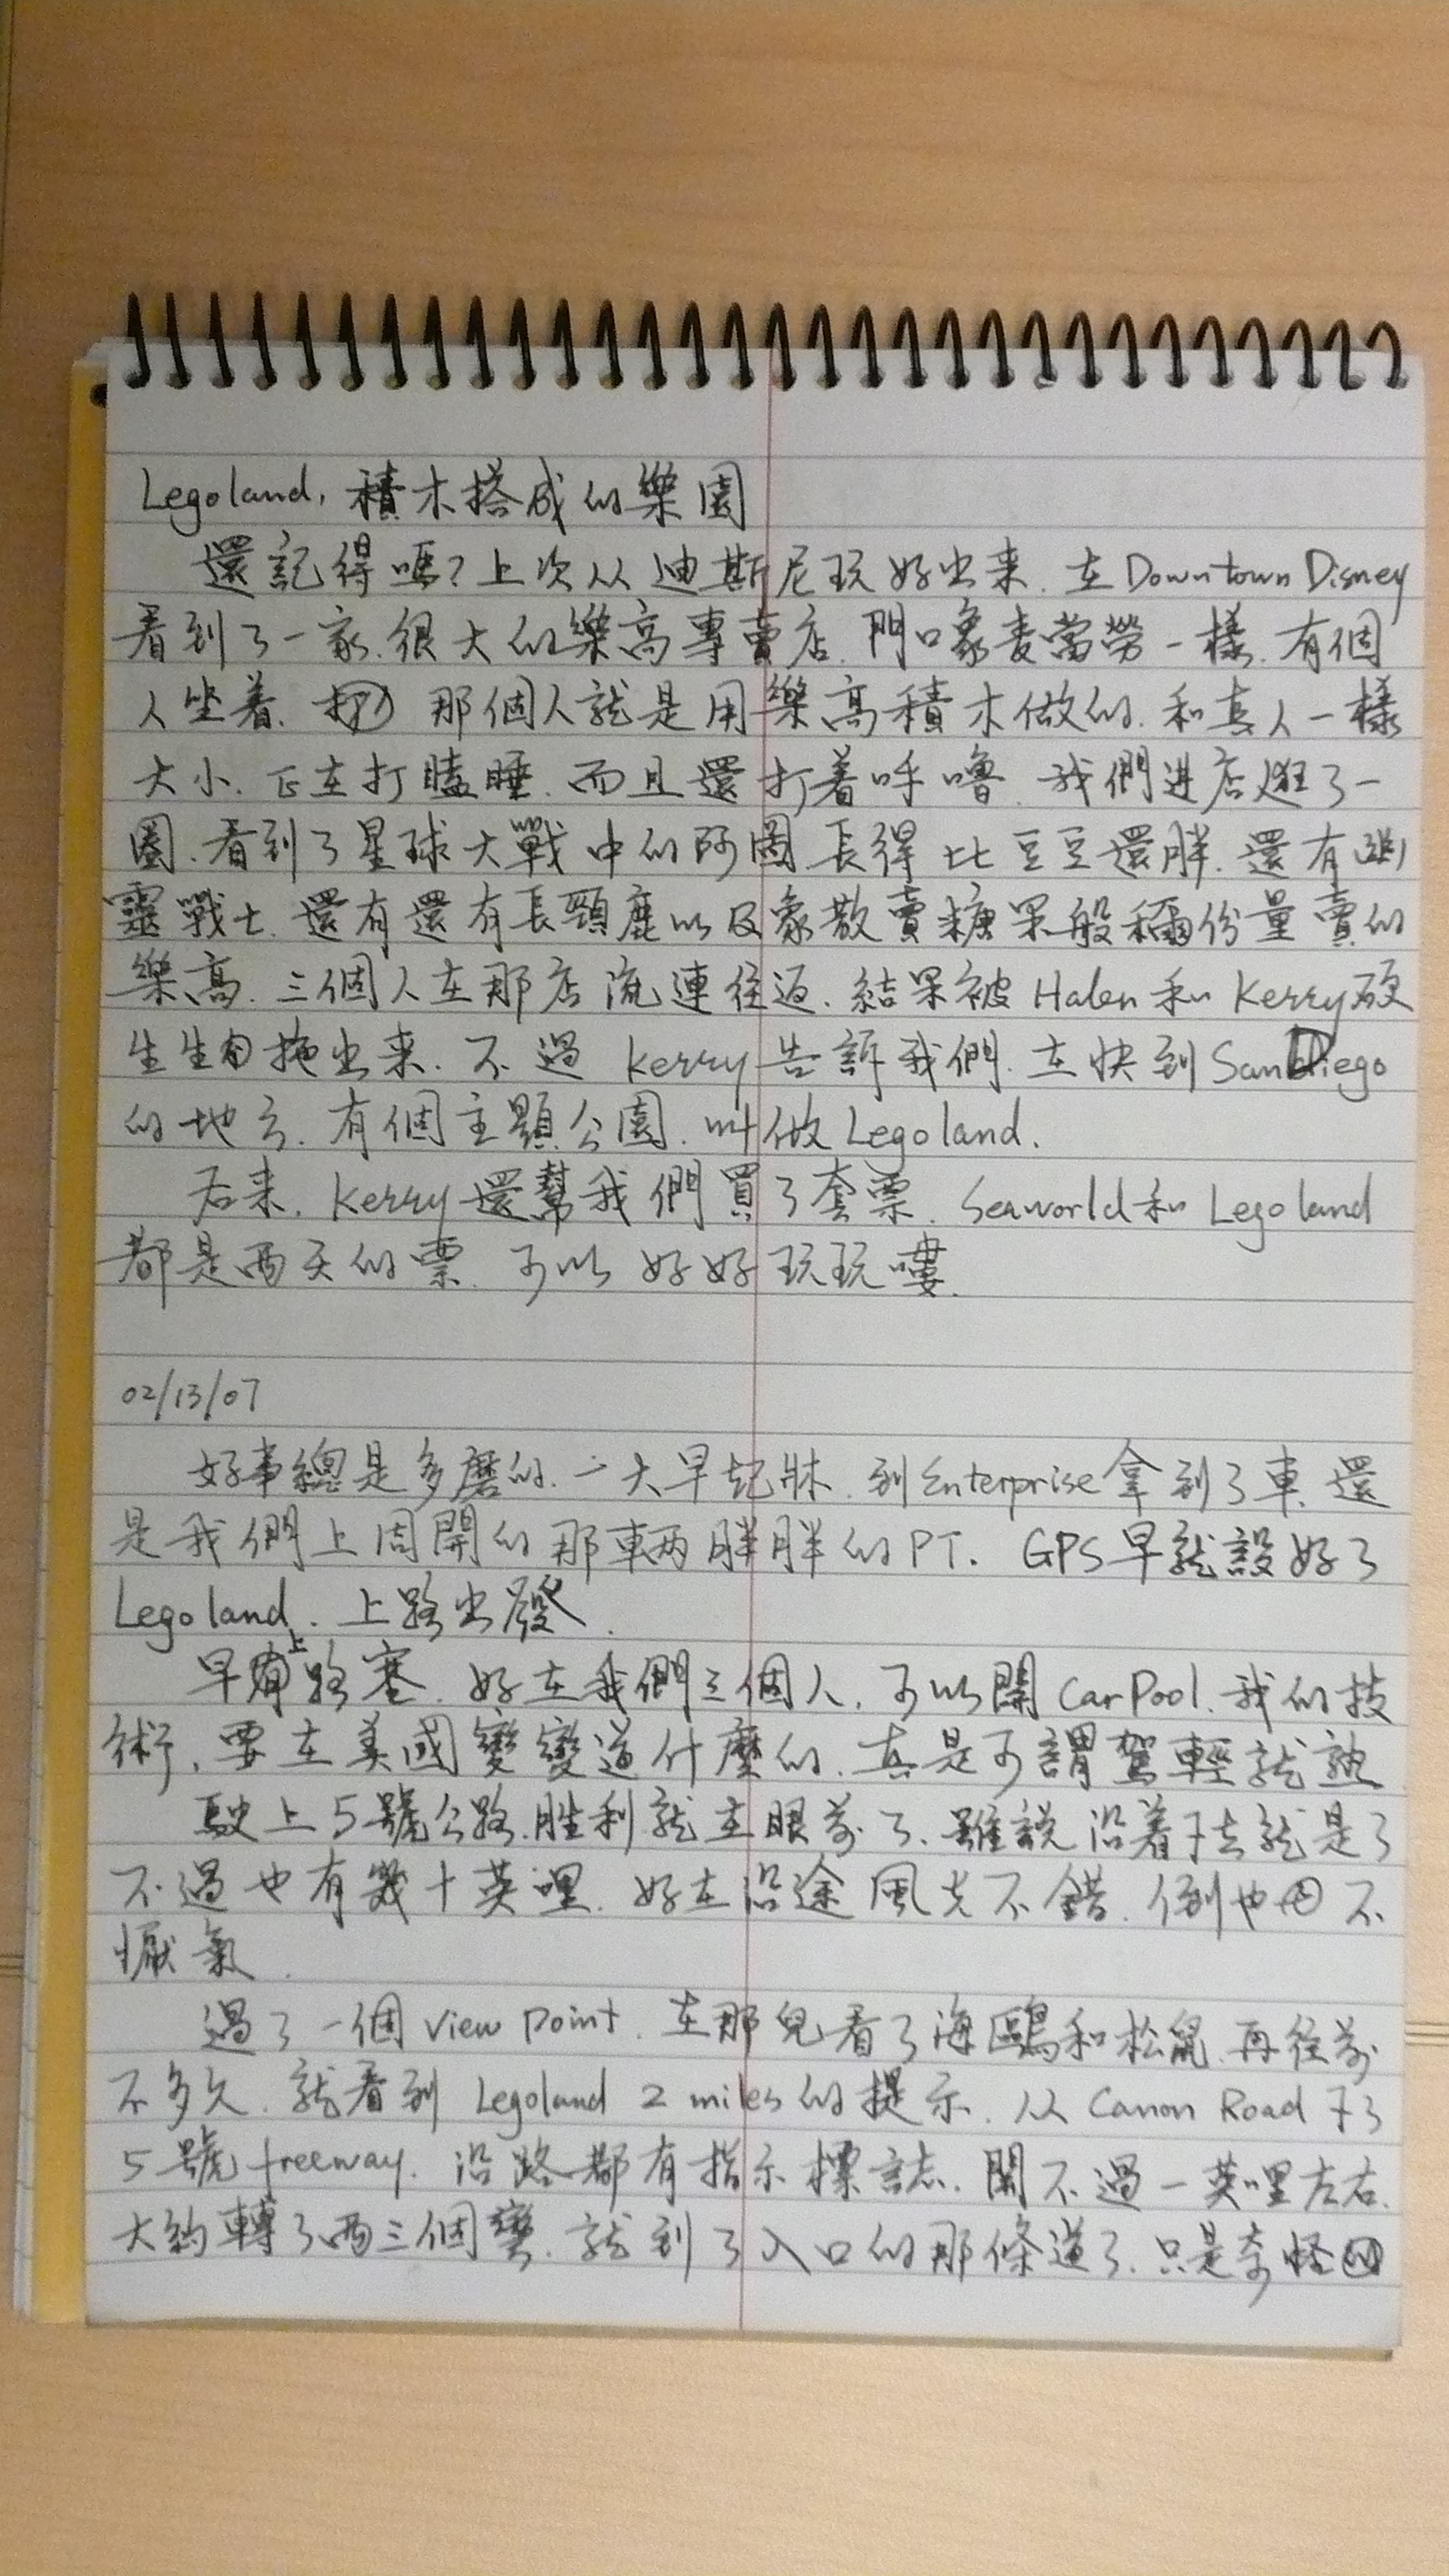 Legoland, 積木搭成的樂園
還記得嗎?上次从迪斯尼玩好出来.在Downtown Disney
看到了一家.很大的樂高專賣店.門口象麦當勞一樣.有個
人坐着. 那個人就是用樂高積木做的.和真人一樣
大小.正在打瞌睡.而且還打着呼嚕.我們进店逛了一
圈.看到了星球大戰中的阿圖.長得比豆豆還胖.還有幽
靈戰士.還有還有長頸鹿以及象散賣糖果般稱份量賣的
樂高.三個人在那店流連往返.結果被Halen和Kerry硬
生生拖出来.不過Kerry告訴我們.在快到SanDiego
的地方.有個主題公園.叫做Legoland.
后来.Kerry還幫我們買了套票.Seaworld和Legoland
都是两天的票.可以好好玩玩嘍.
02/13/07
好事總是多磨的.一大早起牀.到Enterprise拿到了車.還
是我們上周開的那輛胖胖的PT. GPS早就設好了
Legoland.上路出發.
早上路塞.好在我們三個人.可以開CarPool.我的技
術.要在美國變變道什麽的.真是可謂駕輕就熟
駛上5號公路.胜利就在眼前了.雖説沿着下去就是了
不過也有幾十英哩.好在沿途風光不錯.倒也不
懨氣.
過了一個View Point.在那兒看了海鷗和松鼠.再往前
不多久.就看到Legoland 2 miles的提示.从Canon Road下了
5號freeway.沿路都有指示標誌.開不過一英哩左右.
大約轉了两三個彎.就到了入口的那條道了.只是奇怪的